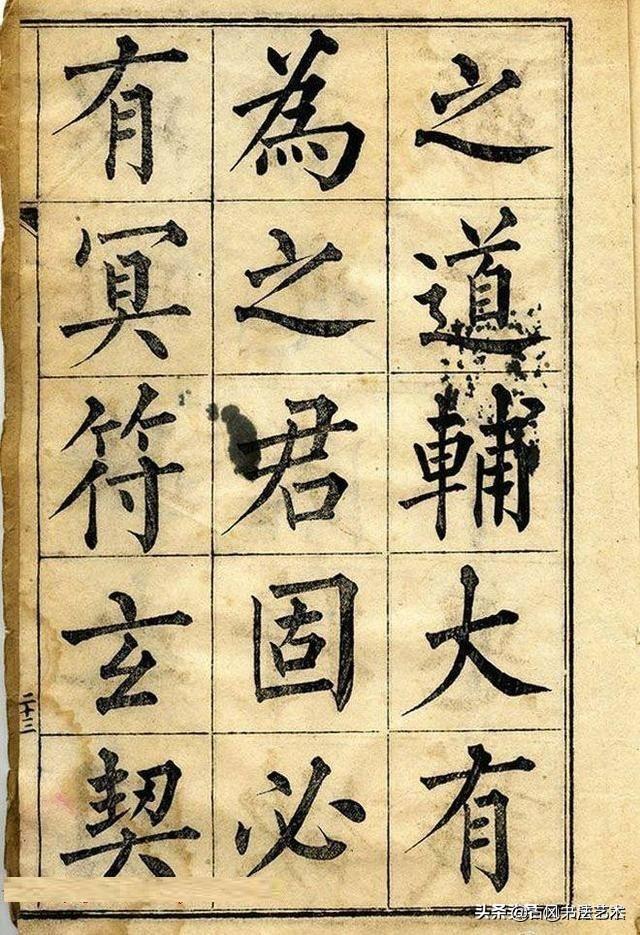 之道輔大有
為之君固必
有冥符玄契
二十三
头条@古冈书法艺术